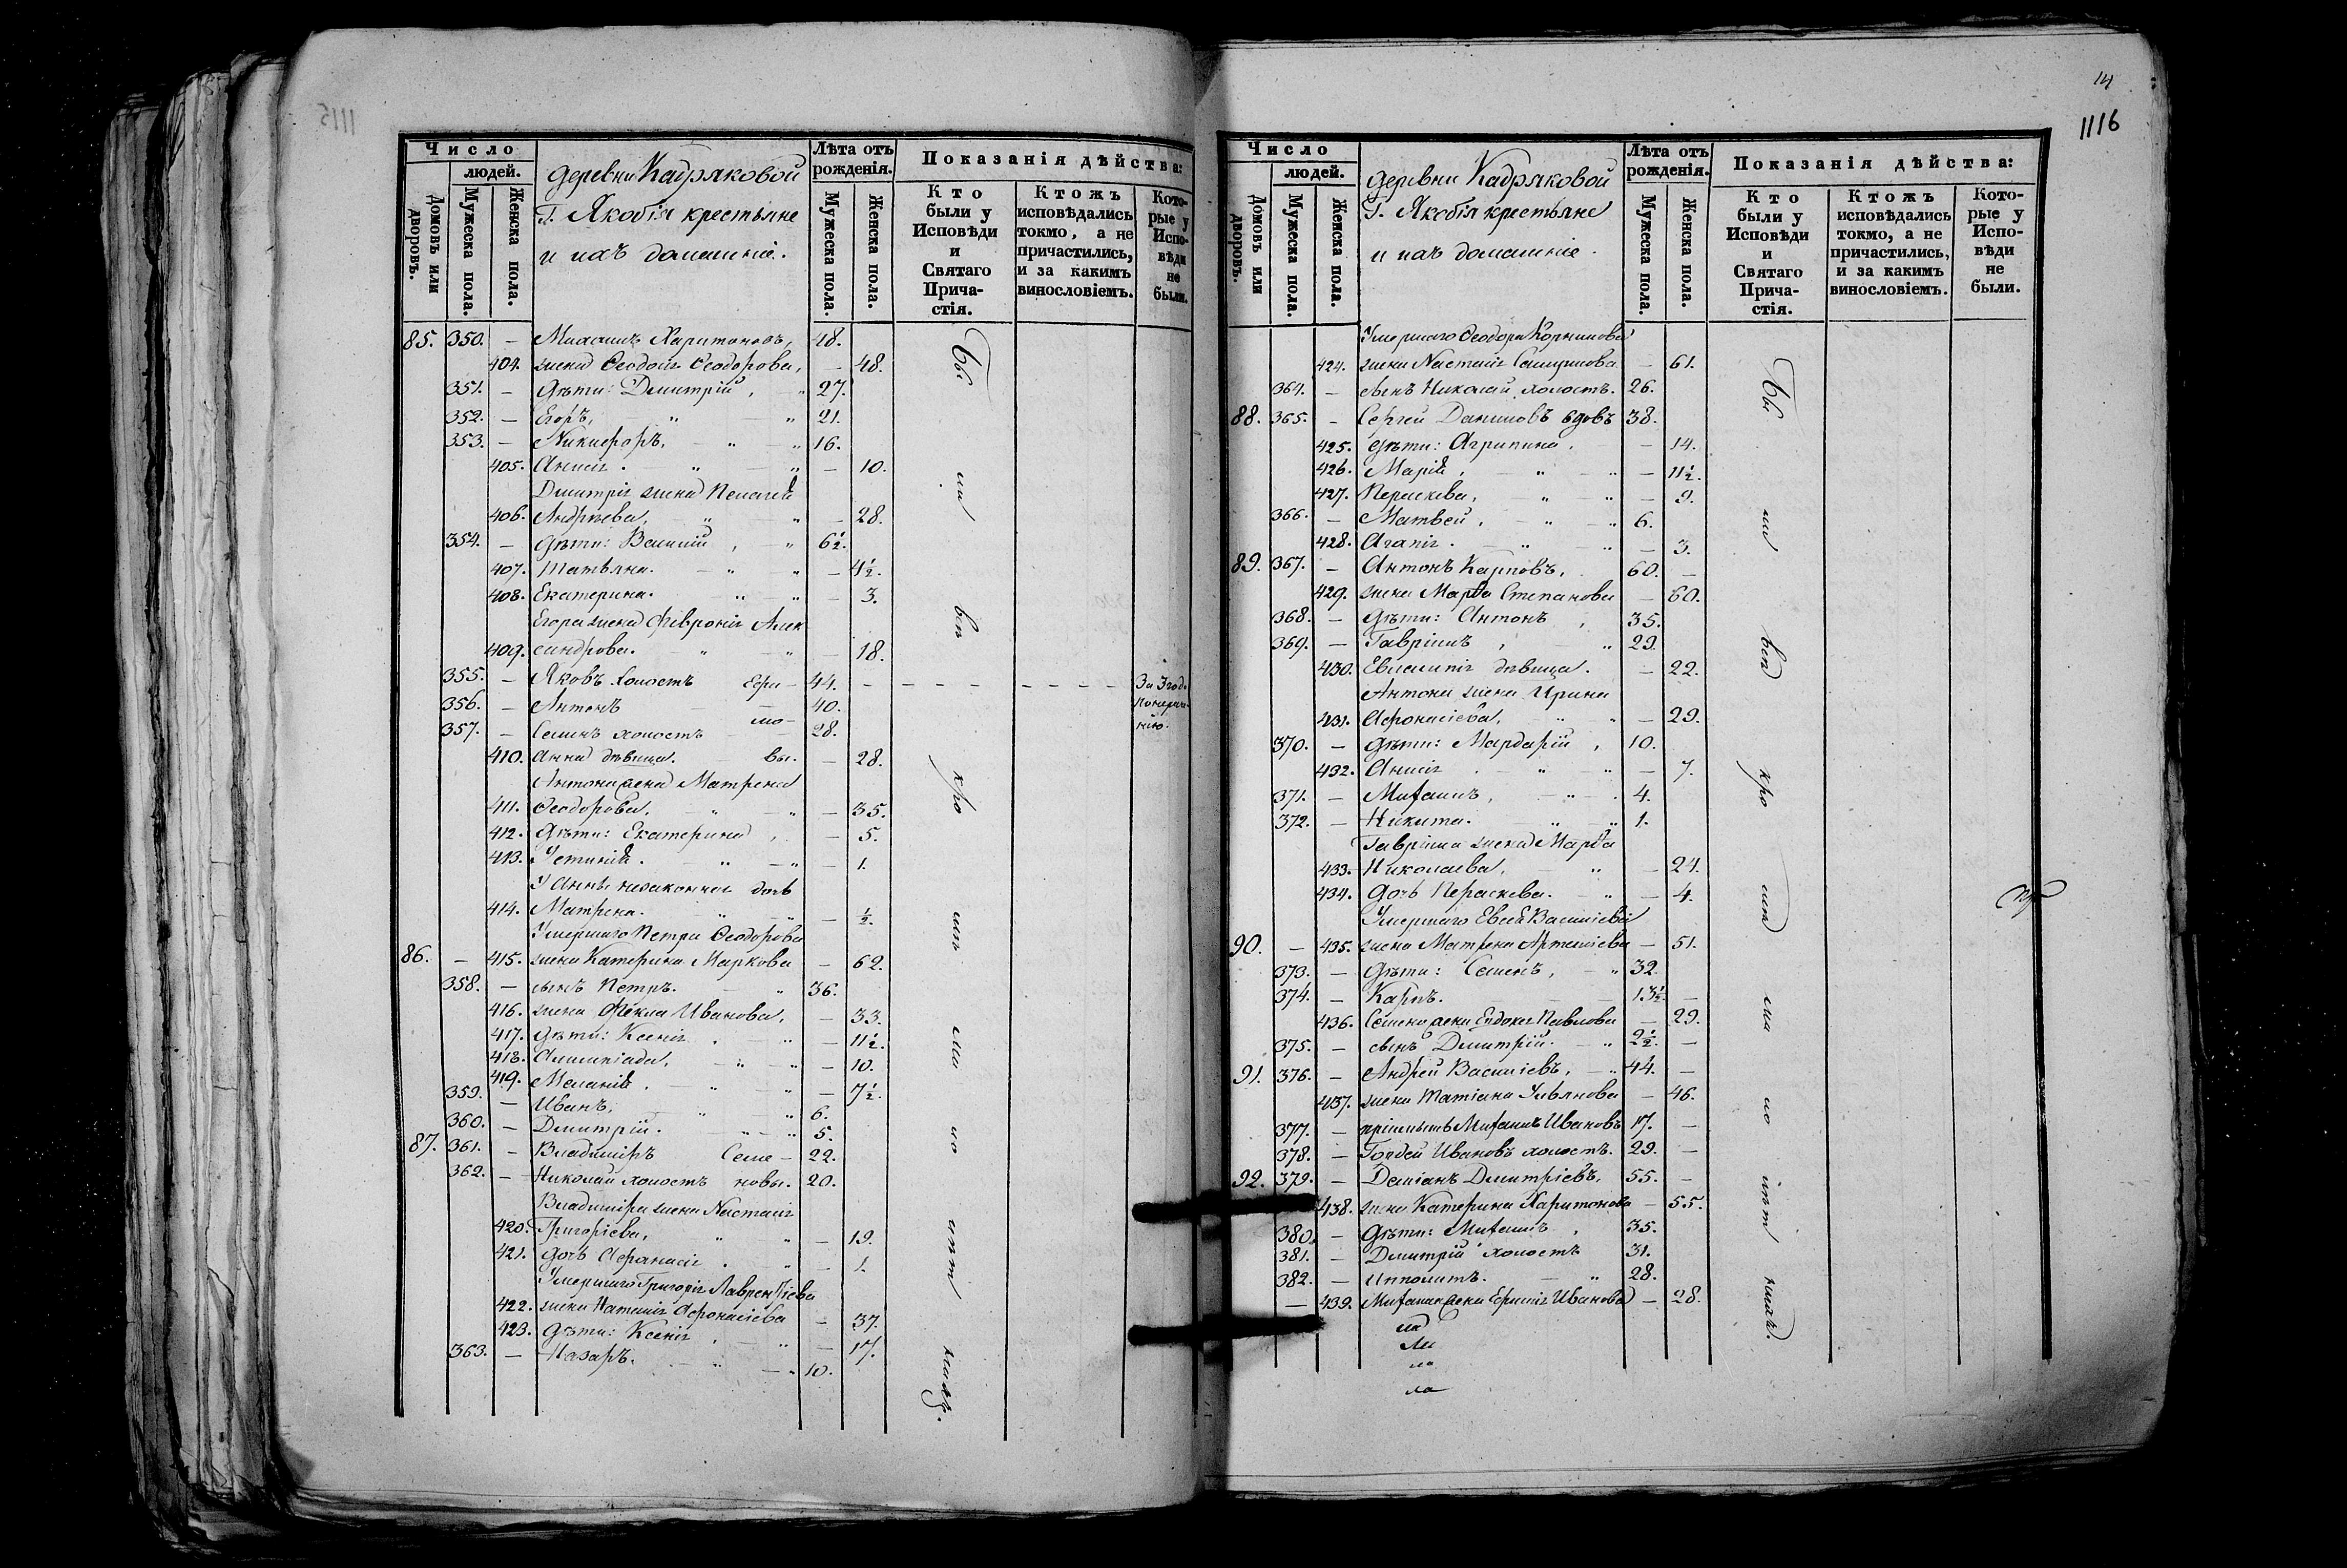 1115
Число
людей.
Домовъ или дворовъ.
Мужеска пола.
Женска пола.
деревни Кадряковой
Г. Якобія крестьяне
и ихъ домашніе.
Лѣта отъ рожденія.
Мужеска пола.
Женска пола.
Показанія дѣйства:
Кто были у Исповѣди и Святаго Причастія.
Ктожъ исповѣдались токмо, а не причастились, и за какимъ винословіемъ.
Которые у Исповѣди не были.
85. 350. — Михаилъ Харитоновъ, 48.
404. жена Ѳеодосія Ѳеодорова, — 48.
351. — дѣти: Дмитрій, 27.
352. — Егоръ, 21.
353. — Никифоръ, 16.
405. Анисія. — 10.
Дмитрія жена Пелагея
406. Андреева, — 28.
354. — дѣти: Василій, 6½.
407. Татьяна. — 4½.
408. Екатерина. — 3.
Егора жена Февронія Алек
409. сандрова. — 18.
355. — Яковъ холостъ Ефри — 44. За 3 год.
356. — Антонъ 40.
357. — Семенъ холостъ мо — 28.
410. Анна дѣвица. вы. — 28.
Антона жена Матрена
411. Ѳеодорова, — 35.
412. дѣти: Екатерина, — 5.
413. Устинія. — 1.
У Анны незаконная дочь
414. Матрена. — ½.
Умершаго Петра Ѳеодорова
86. — 415. жена Катерина Маркова — 62.
358. — сынъ Петръ. 36.
416. жена Фекла Иванова, — 33.
417. дѣти: Ксенія — 11½.
418. Алимпіада, — 10.
419. Меланія. — 7½.
359. — Иванъ, 6.
360. — Дмитрій. 5.
87. 361. — Владиміръ Семе — 22.
362. — Николай холостъ новы. 20.
Владиміра жена Настасія
420. Григоріева, — 19.
421. дочь Афанасія — 1.
Умершаго Григорія Лаврентіева
422. жена Наталія Афонасіева — 37.
423. дѣти: Ксенія — 17.
363. — Назаръ. — 10.
14
1116
Число
людей.
Домовъ или дворовъ.
Мужеска пола.
Женска пола.
деревни Кадряковой
Г. Якобія крестьяне
и ихъ домашніе.
Лѣта отъ рожденія.
Мужеска пола.
Женска пола.
Показанія дѣйства:
Кто были у Исповѣди и Святаго Причастія.
Ктожъ исповѣдались токмо, а не причастились, и за какимъ винословіемъ.
Которые у Исповѣди не были.
Умершаго Ѳеодора Корнилова
424. жена Настасія — 61.
364. — сынъ Николай холостъ. 26.
88. 365. — Сергей Даниловъ вдовъ 38.
425. дѣти: Агрипина. — 14.
426. Марія, — 11½.
427. Пераскева, — 9.
366. — Матвей, 6.
428. Агапія. — 3.
89. 367. — Антонъ Карповъ, 60. —
429. жена Марѳа Степанова — 60.
368. — дѣти: Антонъ, 35.
369. — Гавріилъ, 29.
430. Евлампія дѣвица. — 22.
Антона жена Ирина
431. Афонасіева, — 29.
370. — дѣти: Мардарій, 10.
432. Анисія. — 7.
371. — Михаилъ, 4.
372. — Никита. 1.
Гавріила жена Марѳа
433. Николаева, — 24.
434. дочь Пераскева. — 4.
Умершаго Евсея Василіева
90. — 435. жена Матрена Артеміева — 51.
373. — дѣти: Семенъ, 32.
374. — Карпъ. 13½. —
436. Семена жена Евдокея Павлова — 29.
375. — сынъ Дмитрій. 2½. —
91. 376. — Андрей Василіевъ, 44. —
437. жена Татіана Ульянова — 46.
377. — пріемышъ Михаилъ Ивановъ 17. —
378. — Гордей Ивановъ холостъ. 29. —
92. 379. — Деміанъ Дмитріевъ, 55. —
438. жена Катерина Харитонова — 55.
380. — дѣти: Михаилъ, 35.
381. — Дмитрій холостъ 31.
382. — Ипполитъ. 28.
— 439. Михаила жена Ефимія Иванова — 28.